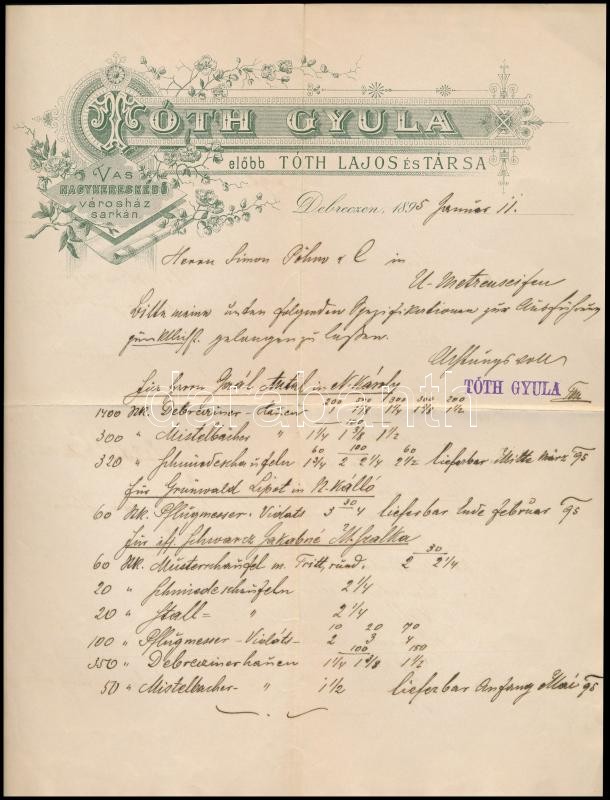 TÓTH GYULA
előbb TÓTH LAJOS és TÁRSA
VAS
NAGYKERESKEDŐ
városház
sarkán.
Debreczen, 1895 Januar 11.
Herrn Simon in
U-Metzenseifen
Bitte meine unten folgenden Spezifikationen zur Ausführung
gelangen zu lassen.
Achtungsvoll
TÓTH GYULA
Für Herrn Antal in N. Károly
200 300 200
1400 Stk. Debrecziner-Hauen 1 1 1/8 1 1/4 1 3/8 1 1/2
300 " Mistelbacher " 1 1/4 1 3/8 1 1/2
60 100 60
320 " Schmiedeschaufeln 1 3/4 2 2 1/4 2 1/2 lieferbar Mitte März 95
Für Grünwald Lipot in N-Kálló
30
60 Stk. Pflugmesser-Vidats 3 4 lieferbar Ende Februar 95
Für Schwarcz Jakabné M. Szalka
30
60 Stk. Musterschaufel m. Tritt, rund. 2 2 1/4
20 " Schmiedeschaufeln 2 1/4
20 " Stall= " 2 1/4
10 20 70
100 " Pflugmesser-Vidats- 2 3 4
100 150
350 " Debreczinerhauen 1 1/4 1 3/8 1 1/2
50 " Mistelbacher- " 1 1/2 lieferbar Anfang Mai 95
darabanth